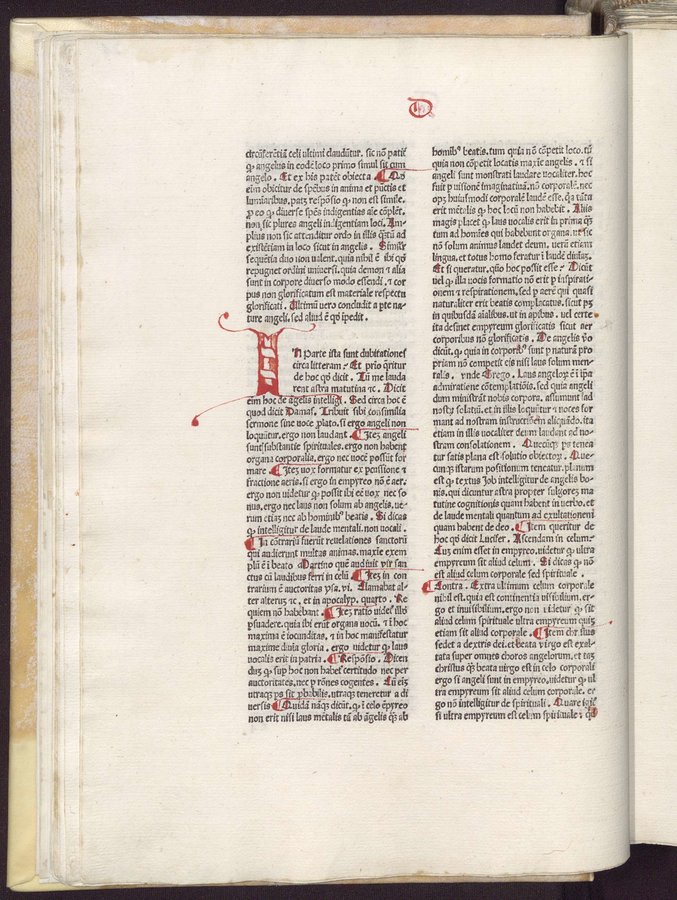 D
circũferẽtia celi ultimi claudũtur. sic nõ patit͛
qꝫ angelus in eodẽ loco primo simul sit cum
angelo. Et ex his patẽt obiecta. Qđ
eim obicitur de spẽbus in anima et pũctis et
luminaribus, patꝫ respõsio qꝫ non est simile,
eo qꝫ diuerse spẽs indigentias
non sic plures angeli indigentiam loci. Am
plius non sic attenditur ordo in illis
existẽtiam in loco sicut in angelis. Simĩlr
sequẽtia duo non ualent. quia nihil ẽ ibi
repugnet ordini uniuersi. quia demon ⁊ alia
sunt in corpore diuerso modo essendi. ⁊ cor
pus non glorificatum est materiale respectu
glorificati. Ultimũ uero concludit a pte na
ture angeli, sed aliud ẽ impedit.
IN parte ista sunt dubitationes
circa litteram. Et prio q̃ritur
de hoc dicit. Tũ me lauda
rent astra matutina ⁊c. Dicit
eim hoc de ãgelis intelligi. Sed circa hoc ẽ
quod dicit Damas. Tribuit sibi consimilia
sermone sine uoce plato. si ergo angeli non
loquũtur, ergo non laudant. Itẽ angeli
sunt substantie spirituales, ergo non habent
organa corporalia, ergo nec uocẽ possũt for
mare. Itẽ uox formatur ex pensione ⁊
fractione aeris. si ergo in empyreo nõ ẽ aer.
ergo non uidetur qꝫ possit ibi eẽ uox nec so
nus, ergo nec laus non solum ab angelis, ue
rum etiaꝫ nec ab hominibꝰ beatis. Si dicas
qꝫ intelligitur de laude mentali, non uocali.
In contrariũ fuerũt reuelationes sanctorũ
qui audierunt multas animas. maxie exem
pli ẽ i beato Martino que audiuit vir san
ctus cũ laudibus ferri in celũ. Itẽ in con
trarium ẽ auctoritas ysa. vi. Clamabat al
ter alterũ ⁊c. et in apocalyp. quarto. Re
quiem nõ habebant. Itẽ ratio videt͛ illđ
psuadere. quia ibi erũt organa uocũ. ⁊ i hoc
maxima ẽ iocunditas, ⁊ in hoc manifestatur
maxime diuĩa gloria. ergo uidetur qꝫ laus
vocalis erit in patria. Respõsio. Dicen
dũꝫ qꝫ sup hoc non habet͛ certitudo nec per
auctoritates, nec p rõnes cogentes. Cũ eĩs
utraqꝫ ps sit pbabilis, utraqꝫ teneretur a di
uersis. Quidã nãqꝫ dicũt. qꝫ i celo ẽpyreo
non erit nisi laus mẽtalis tã ab ãgelis qꝫ ab
homibꝰ beatis. tum quia nõ cõpetit loco. tũ
quia non cõpetit locatis maxie angelis. ⁊ si
angeli sunt monstrati laudare uocaliter. hoc
fuit p uisionẽ imaginatiuã, nõ corporalẽ, nec
opꝫ huiusmodi corporalẽ laudẽ esse.
erit mẽtalis qꝫ hoc locũ non habebit. Aliis
magis placet qꝫ laus vocalis erit in
tum ad hoĩnes qui habebunt organa. ut sic
nõ solum animus laudet deum, uerũ etiam
lingua, et totus homo feratur i laudẽ diuinã.
Et si queratur, qũo hoc possit esse? Dicũt
uel qꝫ illa uocis formatio nõ erit p inspirati-
onem ⁊ respirationem, sed p aerẽ qui quasi
naturaliter erit beatis complacatus. sicut pꝫ
in quibusdã aĩalibus. ut in apibus. vel certe
ita desinet empyreum glorificatis sicut aer
corporibus nõ glorificatis. De angelis ṽo
dicũt, qꝫ quia in corporibꝰ sunt p naturã pro
priam nõ competit eis nisi laus solum men-
talis. vnde Grego. Laus angeloꝝ ẽ i ipa
admiratione cõtemplatiõis. sed quia angeli
dum ministrãt nobis corpora. assumunt ad
nostrũ solatiũ, et in illis loquitur ⁊ uoces for
mant ad nostram instructiõem aliquãdo. ita
etiam in illis vocaliter deum laudant ad no-
stram consolationem. Quecũqꝫ ps tenea
tur satis plana est solutio obiectoꝝ. Que-
cũqꝫ istarum positionum teneatur. planum
est qꝫ textus Job intelligitur de angelis bo-
nis, qui dicuntur astra propter fulgorẽ ma
tutine cognitionis quam habent in verbo, et
de laude mentali quantum ad exultationeꝫ
quam habent de deo. Item queritur de
hoc qđ dicit Lucifer. Ascendam in celum.
Cum enim esset in empyreo. uidetur qꝫ ultra
empyreum sit aliud celum. Si dicas qꝫ nõ
est aliud celum corporale sed spirituale.
Contra. Extra ultimum celum corporale
nihil est. quia est continentia visibilium. er-
go et inuisibilium. ergo non videtur qꝫ sit
aliud celum spirituale ultra empyreum quiꝫ
etiam sit aliud corporale. Itẽ chr̃istus
sedet a dextris dei, et beata virgo est exal-
tata super omnes choros angelorum, et tañ
christus qꝫ beata virgo est in celo corporali
ergo si angeli sunt in empyreo. uidetur qꝫ ul
tra empyreum sit aliud celum corporale. er
go nõ intelligitur de spirituali. Quare igit͛
si ultra empyreum est celum spirituale ⁊